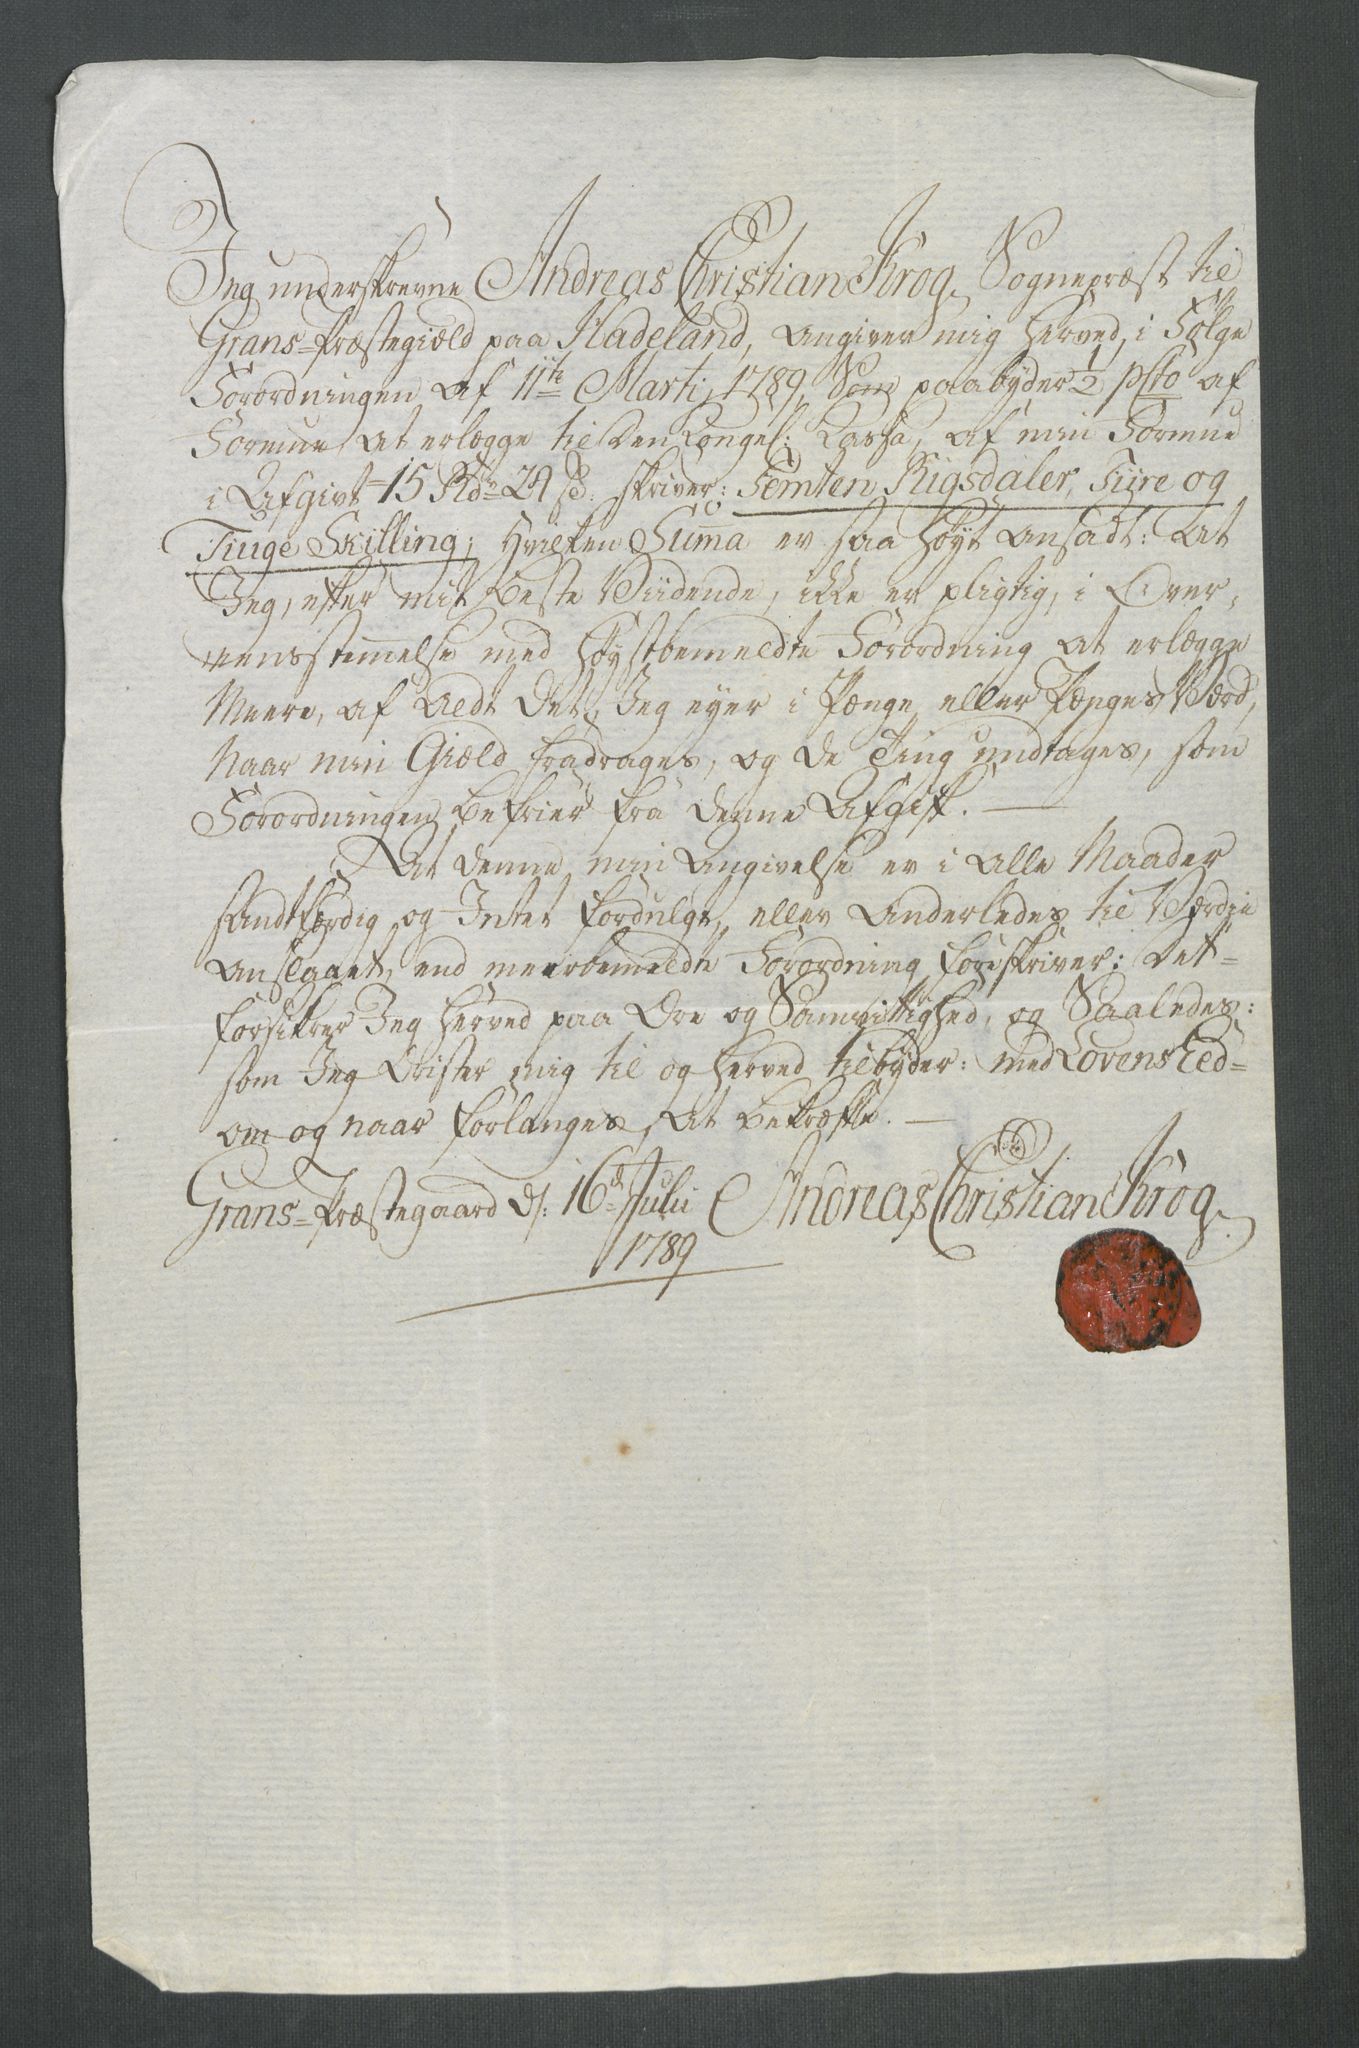 Jeg underskrevne Andreas Christian Krog, Sognepræst til
Grans=Præstegiæld paa Hadeland, angiver mig herved, i Følge
Forordningen af 11te Martj 1789, Som paabyder 1/2 pCto af
Formue at erlægge til Den Kongel: Kassa, af min Formue
i Afgivt 15 Rdr 24 s: skriver: Femten Rigsdaler, Fiire og
Tiuge Skilling; Hvilken Suma er saa høyt ansadt: At
Jeg, efter mit beste Viidende, ikke er pligtig, i Over,
eensstemelse med høystbemeldte Forordning at erlægge
Meere, af aldt det, Jeg eyer i Penge eller Penges Værd,
Naar min Giæld fradrages, og de Ting undtages, som
Forordningen befrier fra denne Afgift. —
At denne min Angivelse er i alle Maader
sandfærdig og Intet fordulgt, eller anderledes til Værdie
anslaaet, end meerbemeldte Forordning foreskriver: Det=
forsikrer Jeg herved paa Ære og Samvittighed, og Saaledes:
som Jeg drister mig til og herved tilbyder: med Lovens Eed=
om og naar forlanges, at bekræfte. —
Grans=Præstegaard d: 16d Julii Andreas Christian Krog.
1789